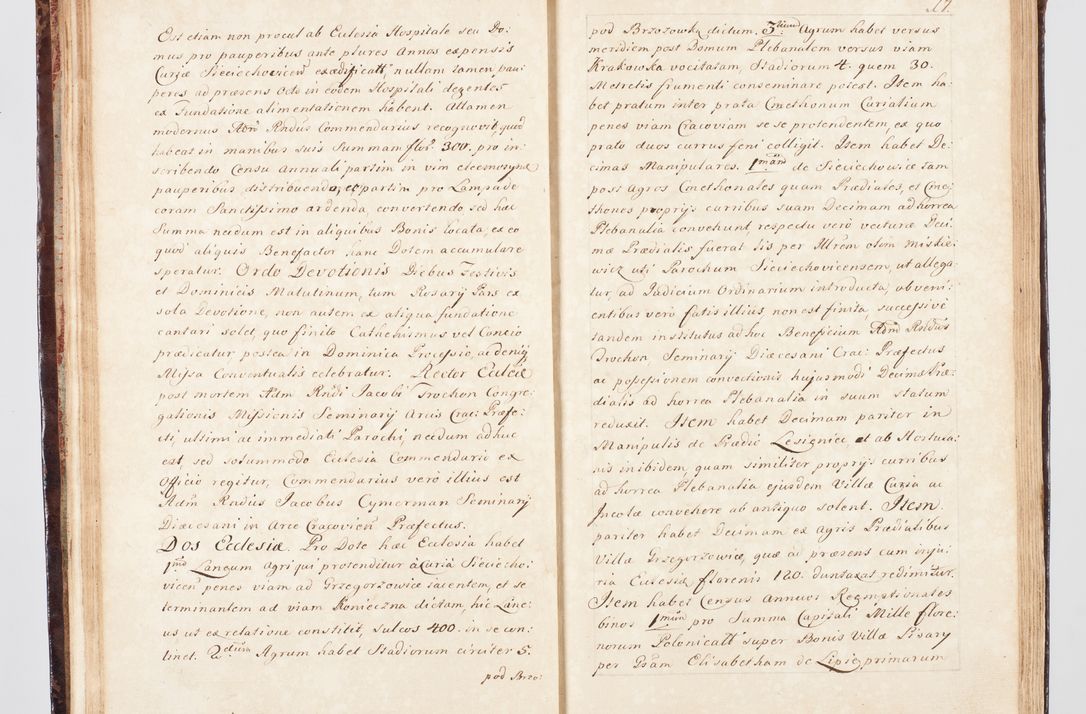 Est etiam non procul ab Eclesia Hospitale seu Do:
mus pro pauperibus ante plures Annos expensis
Curiæ Sieciechovicen̄ exædificatt, nullam tamen pau:
peres ad præsens octo in eodem Hospitali degentes
ex Fundatione alimentationem habent. Attamen
modernus Adm̄ Rndus Commendarius recognovit, quod
habeat in manibus suis Summam flor. 300. pro in:
scribendo Censu Annuali partim in vim eleemosynæ
pauperibus distribuenda, et partim pro Lampade
coram Sanctissimo ardenda, convertendo, sed hæc
Summa necdum est in aliquibus Bonis locata, ex eo
quod aliquis Benefactor hanc Dotem accumulare
speratur. Ordo Devotionis Diebus Festivis
et Dominicis Matutinum, tum Rosarij Pars ex
sola Devotione, non autem ex aliqua fundatione
cantari solet, quo finito Cathehismus vel Concio
prædicatur postea in Dominica Processio, ac deniq̃
Missa Conventualis celebratur. Rector Ecclæ
post mortem Adm Rndi Jacobi Trochon Congre:
gationis Missionis Seminarij Arcis Crac: Præfe:
cti ultimi ac immediati Parochi, necdum adhuc
est, sed solummodo Eclesia Commendario ex
Officio regitur, Commendarius verò illius est
Adm̄ Rndus Jacobus Cymerman Seminarij
Diæcesani in Arce Cracovien̄ Præfectus.
Dos Ecclesiæ. Pro Dote hæc Ecclesia habet
1.mo Laneum agri qui protenditur à Curia Sieciecho:
vicen̄ penes viam ad Grzegorzowice jacentem, et se
terminantem ad viam Konieczna dictam, hic Lane:
us ut ex relatione constitit, sulcos 400. in se con:
tinet. 2.dum Agrum habet Stadiorum circiter 5.
pod Brzo:
17.
pod Brzozowką dictum. 3tium Agrum habet versus
meridiem post Domum Plebanalem versus viam
Krakowka vocitatam, Stadiorum 4. quem 30.
Metretis frumenti conseminare potest. Item ha:
bet pratum inter prata Cmethonum Curialium
penes viam Cracoviam se se protendentem, ex quo
prato duos currus feni colligit. Item habet De:
cimas Manipulares. 1.mam de Sieciechowice tam
post agros Cmethonales quam Prædiales, et Cme:
thones proprijs curribus suam Decimam ad horrea
Plebanalia convehunt, respectu verò vecturæ Deci:
mæ Prædialis fuerat lis per Illrem olim Miskie:
wicz uti Parochum Sieciechovicensem, ut allega:
tur, ad Judicium Ordinarium introducta, obveni:
entibus verò fatis illius non est finita, successive
tandem institutus ad hoc Beneficium Adm̄ Rndus
Trochon Seminarij Diæcesani Crac: Præfectus
ac possessionem convectionis hujusmodi Decimæ Præ:
dialis ad horrea Plebanalia in suum statum
reduxit. Item habet Decimam pariter in
Manipulis de Prædio Lesignica et ab Hortula:
nis inibidem, quam similiter proprijs curribus
ad horrea Plebanalia ejusdem Villæ Curia ac
Incolæ convehere ab antiquo solent. Item
pariter habet Decimam ex Agris Prædialibus
Villæ Grzegorzowice, quæ ad præsens cum inju:
ria Eclesiæ florenis 120. duntaxat redimitur.
Item habet Census Annuos Reemptionales
binos 1.mum pro Summa Capitali Mille flore:
norum Polonicatt super Bonis Villæ Pisary
per Gsam Elisabetham de Lipie primarum